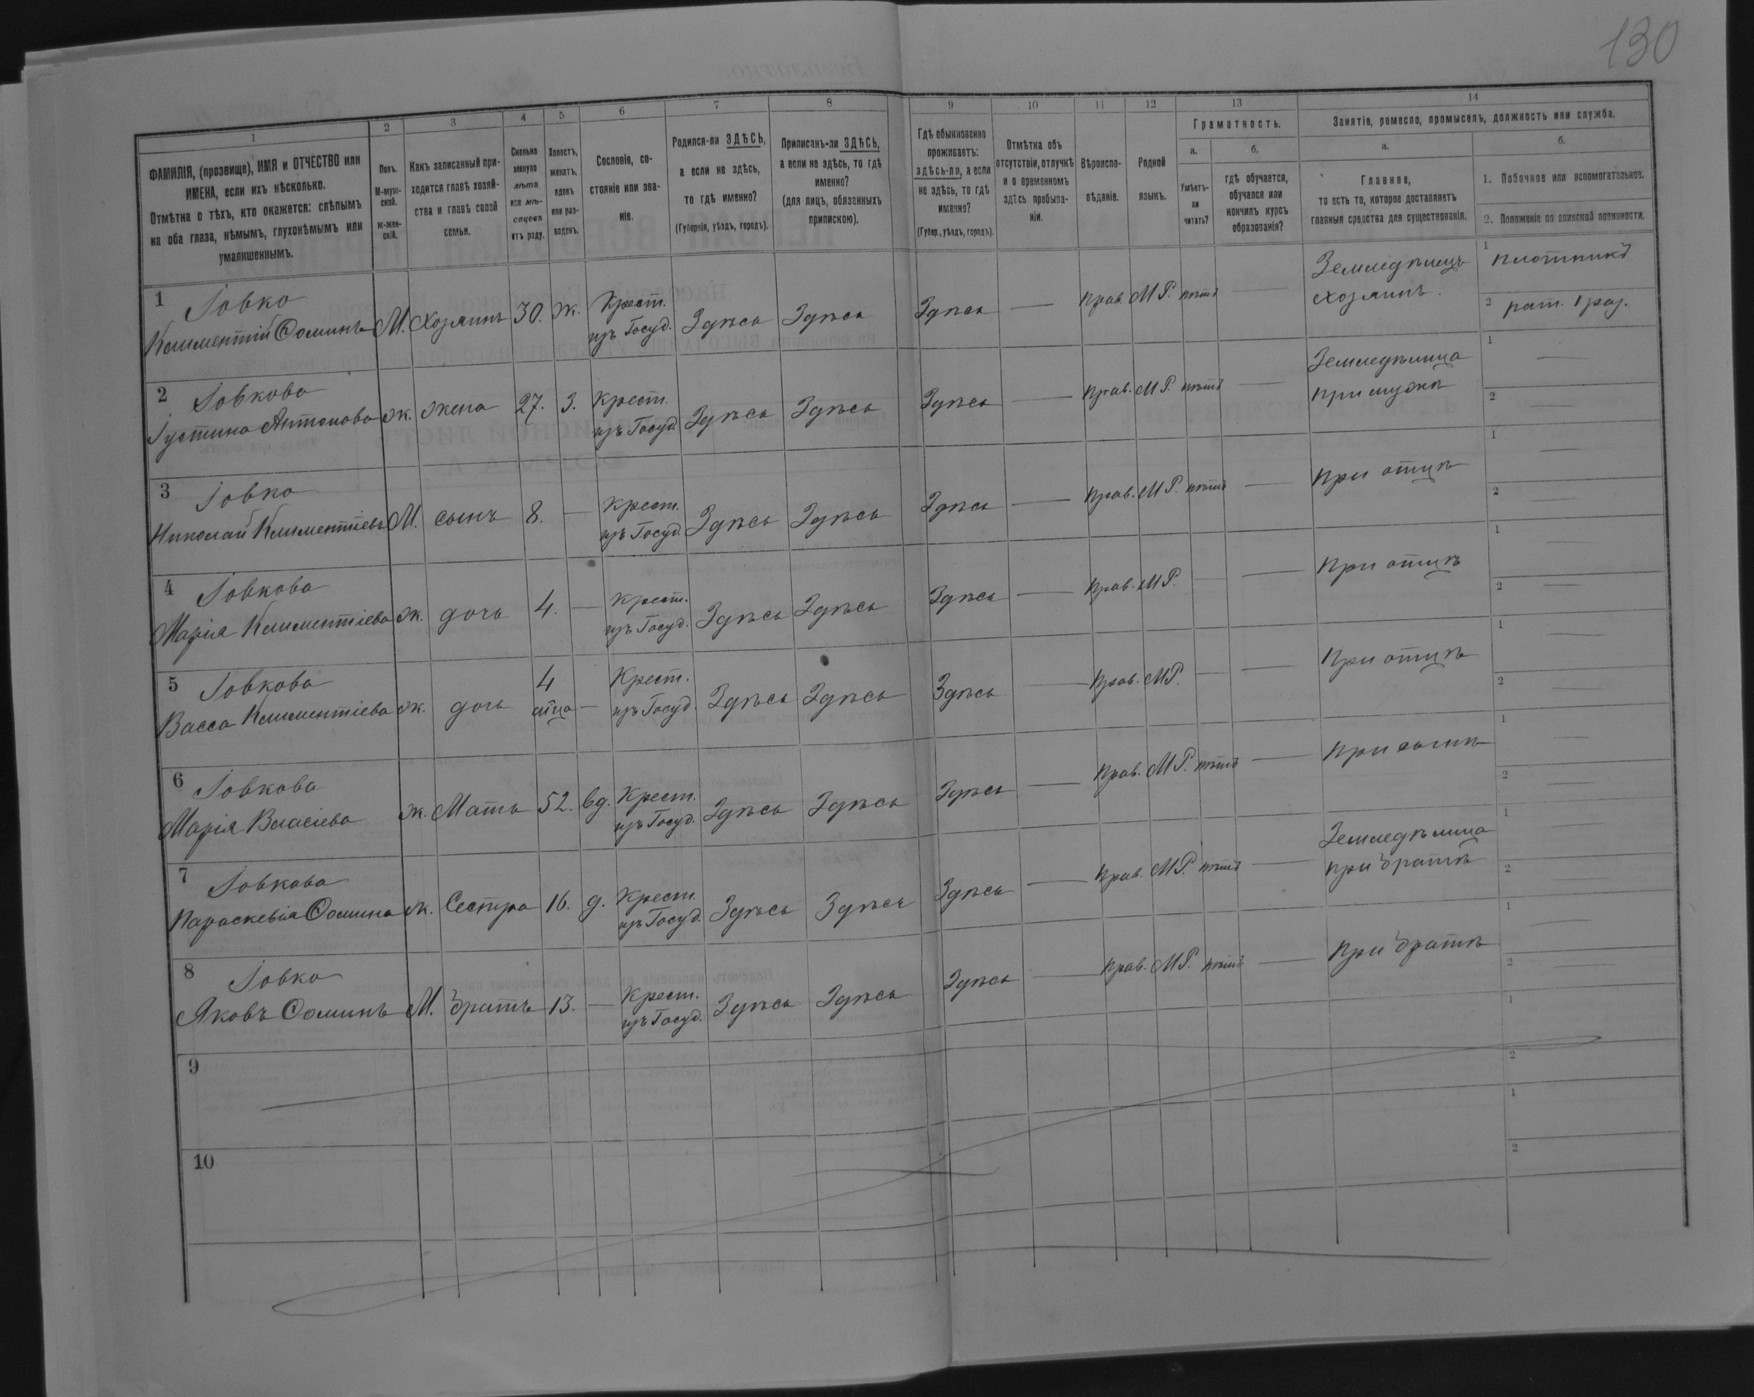 130
1 2 3 4 5 6 7 8 9 10 11 12 13 14
ФАМИЛІЯ, (прозвище), ИМЯ и ОТЧЕСТВО или
ИМЕНА, если ихъ нѣсколько.
Отмѣтка о тѣхъ, кто окажется: слѣпымъ
на оба глаза, нѣмымъ, глухонѣмымъ или
умалишеннымъ.
Полъ.
М-муж-
ской.
Ж-жен-
скій.
Какъ записанный при-
ходится главѣ хозяй-
ства и главѣ своей
семьи.
Сколько
минуло
лѣтъ
или мѣ-
сяцевъ
отъ роду.
Холостъ,
женатъ,
вдовъ
или раз-
веденъ.
Сословіе, со-
стояніе или зва-
ніе.
Родился-ли ЗДѢСЬ,
а если не здѣсь,
то гдѣ именно?
(Губернія, уѣздъ, городъ).
Приписанъ-ли ЗДѢСЬ,
а если не здѣсь, то гдѣ
именно?
(для лицъ, обязанныхъ
припискою).
Гдѣ обыкновенно
проживаетъ:
здѣсь-ли, а если
не здѣсь, то гдѣ
именно?
(Губер., уѣздъ, городъ).
Отмѣтка объ
отсутствіи, отлучкѣ
и о временномъ
здѣсь пребыва-
ніи.
Вѣроиспо-
вѣданіе.
Родной
языкъ.
Грамотность.
а.
Умѣетъ-
ли
читать?
б.
гдѣ обучается,
обучался или
кончилъ курсъ
образованія?
Занятіе, ремесло, промыселъ, должность или служба.
а.
Главное,
то есть то, которое доставляетъ
главныя средства для существованія.
б.
1. Побочное или вспомогательное.
2. Положеніе по воинской повинности.
1 Іовко
Климентій Ѳоминъ М. Хозяинъ 30. ж. Крест. изъ Госуд. Здѣсь Здѣсь Здѣсь — Прав. М.Р. нѣтъ — Земледѣлецъ хозяинъ. 1 Плотникъ
2 рат. 1 раз.
2 Іовкова
Іустина Антонова ж. жена 27. З. Крест. изъ Госуд. Здѣсь Здѣсь Здѣсь — Прав. М.Р. нѣтъ — Земледѣлица при мужѣ 1 —
2 —
3 Іовко
Николай Климентіевъ М. сынъ 8. — Крест. изъ Госуд. Здѣсь Здѣсь Здѣсь — Прав. М.Р. нѣтъ — При отцѣ 1 —
2
4 Іовкова
Марія Климентіева ж. дочь 4. — Крест. изъ Госуд. Здѣсь Здѣсь Здѣсь — Прав. М.Р. — — При отцѣ 1 —
2 —
5 Іовкова
Васса Климентіева ж. дочь 4 м̃ца — Крест. изъ Госуд. Здѣсь Здѣсь Здѣсь — Прав. М.Р. — — При отцѣ 1 —
2 —
6 Іовкова
Марія Власіева ж. Мать 52. вд. Крест. изъ Госуд. Здѣсь Здѣсь Здѣсь — Прав. М.Р. нѣтъ — При сынѣ 1 —
2 —
7 Іовкова
Параскевія Ѳомина ж. Сестра 16. д. Крест. изъ Госуд. Здѣсь Здѣсь Здѣсь — Прав. М.Р. нѣтъ — Земледѣлица при братѣ 1 —
2 —
8 Іовко
Яковъ Ѳоминъ М. братъ 13. — Крест. изъ Госуд. Здѣсь Здѣсь Здѣсь — Прав. М.Р. нѣтъ — При братѣ 1 —
2 —
9 1
2
10 1
2